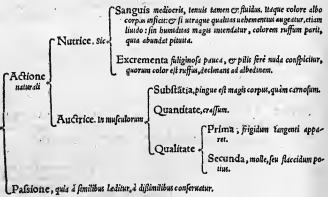 Sanguis mediocris, tenuis tamen & fluidus, itaque colore albo
corpus inficit: & si utraque qualitas uehementius augeatur, etiam
liuido: sin humiditas magis intendatur, colorem ruffum parit,
quia abundat pituita.
Nutrice. Sic
Excrementa fuliginosa pauca, & pilis ferè nuda conspicitur,
quorum color est ruffus, declinans ad albedinem.
Actione
naturali
Substãtia, pingue est magis corpus, quàm carnosum.
Quantitate, crassum.
Auctrice. In musculorum
Prima; frigidum tangenti appa-
ret.
Qualitate
Secunda, molle, seu flaccidum po-
tius.
Passione, quia à similibus læditur, à dissimilibus conseruatur.